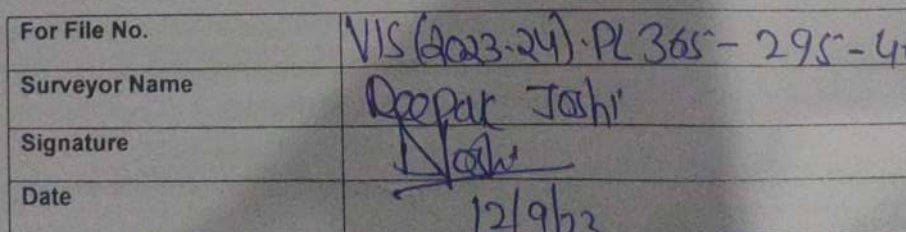 For File No. VIS(2023-24).PL365-295-4
Surveyor Name Deepak Joshi
Signature Joshi
Date 12/9/23